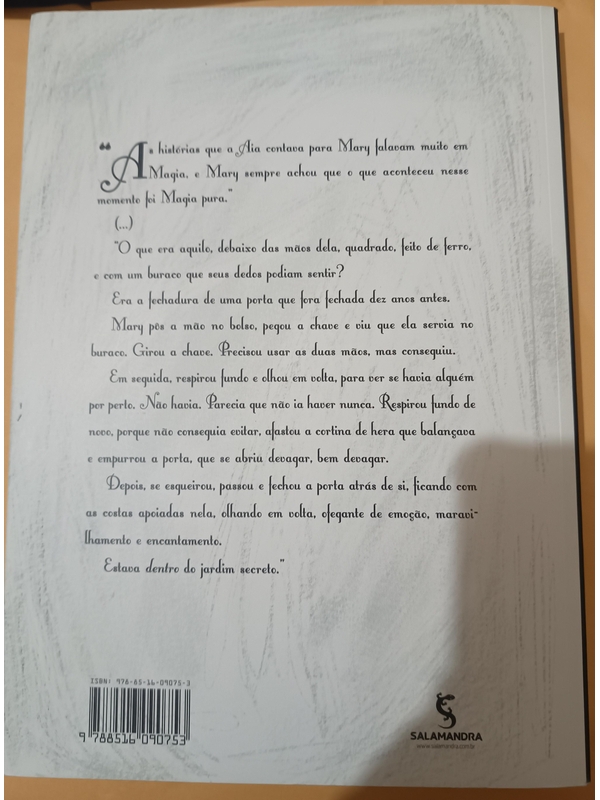 “As histórias que a Aia contava para Mary falavam muito em
Magia, e Mary sempre achou que o que aconteceu nesse
momento foi Magia pura.”
(...)
“O que era aquilo, debaixo das mãos dela, quadrado, feito de ferro,
e com um buraco que seus dedos podiam sentir?
Era a fechadura de uma porta que fora fechada dez anos antes.
Mary pôs a mão no bolso, pegou a chave e viu que ela servia no
buraco. Girou a chave. Precisou usar as duas mãos, mas conseguiu.
Em seguida, respirou fundo e olhou em volta, para ver se havia alguém
por perto. Não havia. Parecia que não ia haver nunca. Respirou fundo de
novo, porque não conseguia evitar, afastou a cortina de hera que balançava
e empurrou a porta, que se abriu devagar, bem devagar.
Depois, se esgueirou, passou e fechou a porta atrás de si, ficando com
as costas apoiadas nela, olhando em volta, ofegante de emoção, maravi-
lhamento e encantamento.
Estava dentro do jardim secreto.”
ISBN: 978-85-16-09075-3
9 788516 090753
SALAMANDRA
www.salamandra.com.br